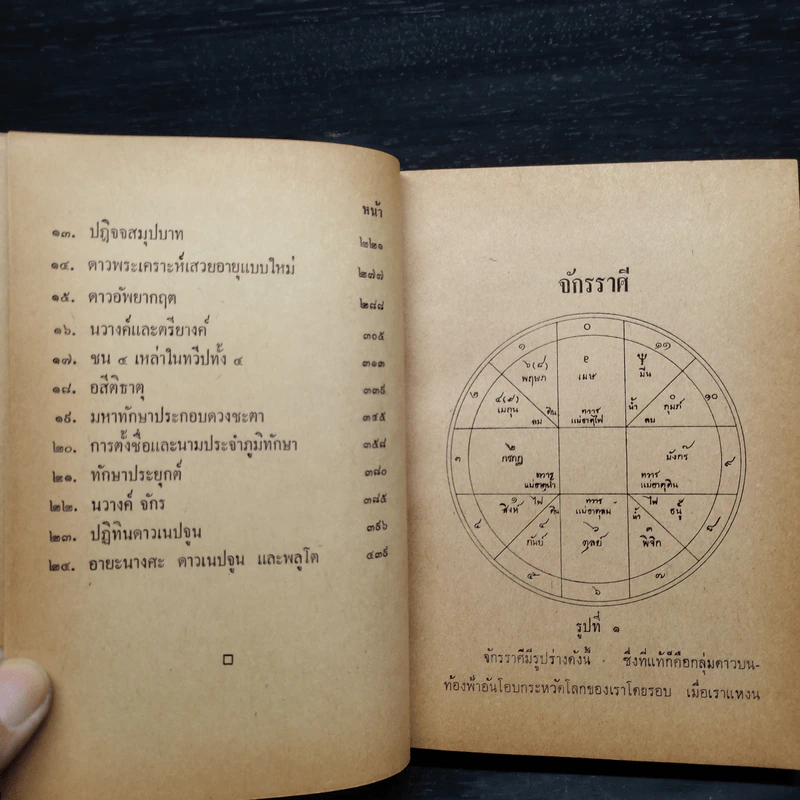 หน้า
๑๓. ปฏิจจสมุปบาท ๒๒๑
๑๔. ดาวพระเคราะห์เสวยอายุแบบใหม่ ๒๗๗
๑๕. ดาวอัพยากฤต ๒๘๘
๑๖. นวางค์และตรียางค์ ๓๐๕
๑๗. ชน ๔ เหล่าในทวีปทั้ง ๔ ๓๑๓
๑๘. อสีติธาตุ ๓๓๙
๑๙. มหาทักษาประกอบดวงชะตา ๓๔๕
๒๐. การตั้งชื่อและนามประจำภูมิทักษา ๓๕๘
๒๑. ทักษาประยุกต์ ๓๘๐
๒๒. นวางค์ จักร ๓๘๕
๒๓. ปฏิทินดาวเนปจูน ๓๙๖
๒๔. อายะนางศะ ดาวเนปจูน และพลูโต ๔๓๙
จักรราศี
๑ ๐ ๑๑
๖(๘) พฤษภ
เมษ
มีน
๒
๔(๙) เมถุน
ลม ดิน
ทวาร
แม่ธาตุไฟ
น้ำ ลม
๐
กุมภ์
๑๐
๓
๒
กรกฎ
ทวาร
แม่ธาตุน้ำ
ทวาร
แม่ธาตุดิน
มังกร
๙
๔
๑
สิงห์
ไฟ ดิน
ทวาร
แม่ธาตุลม
ไฟ น้ำ
ธนู
๘
๕
๔
กันย์
๖
ตุลย์
๓
พิจิก
๗
๖
รูปที่ ๑
จักรราศีมีรูปร่างดังนี้ ซึ่งที่แท้ก็คือกลุ่มดาวบน-
ท้องฟ้าอันโอบกระหวัดโลกของเราโดยรอบ เมื่อเราแหงน